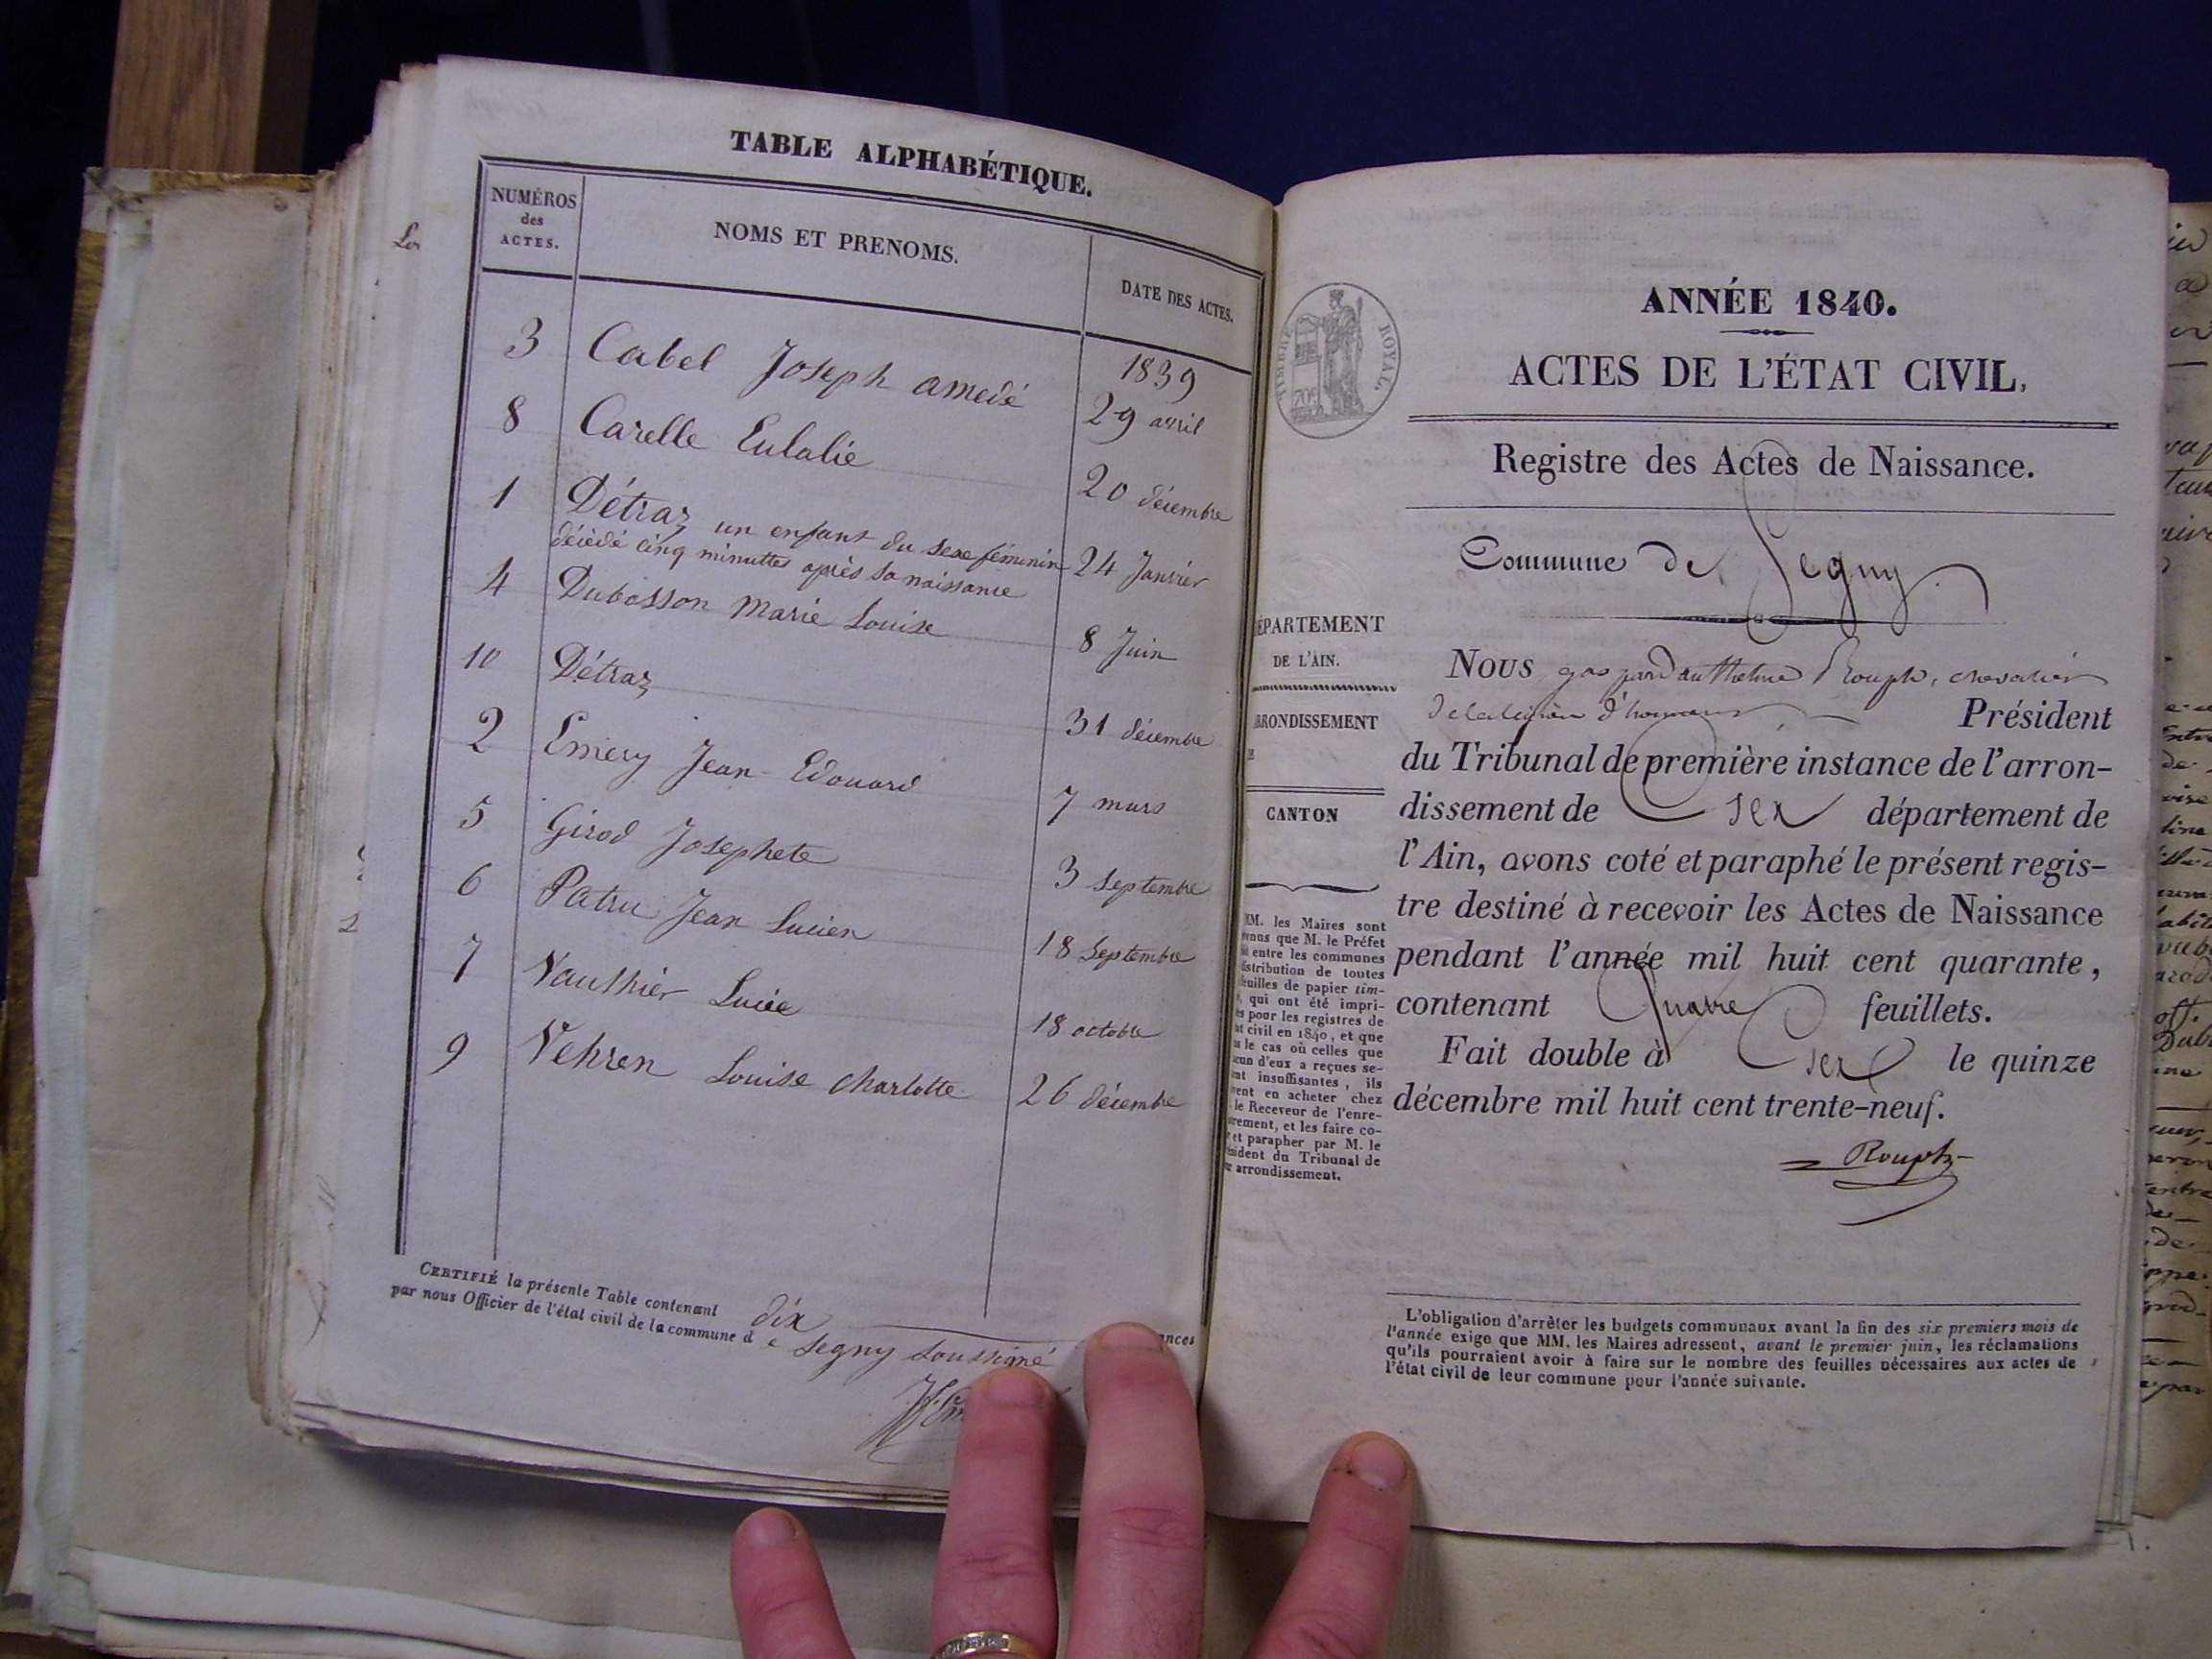 TABLE ALPHABÉTIQUE.
NUMÉROS
des
ACTES.
NOMS ET PRENOMS.
DATE DES ACTES.
1839
3 Cabel Joseph amedé 29 avril
8 Carelle Eulalie 20 décembre
1 Détraz un enfant du sexe féminin
décédé cinq minuttes après sa naissance 24 Janvier
4 Dubosson Marie Louise 8 Juin
10 Détraz 31 décembre
2 Emery Jean-Edouard 7 mars
5 Girod Josephete 3 Septembre
6 Patru Jean Lucien 18 Septembre
7 Vauthier Lucie 18 octobre
9 Vehren Louise charlotte 26 décembre
CERTIFIÉ la présente Table contenant dix
par nous Officier de l'état civil de la commune d e Segny soussigné
TIMBRE ROYAL.
ANNÉE 1840.
ACTES DE L'ÉTAT CIVIL,
Registre des Actes de Naissance.
Commune de Segny
ÉPARTEMENT
DE L'AIN.
RRONDISSEMENT
CANTON
MM. les Maires sont
que M. le Préfet
entre les communes
distribution de toutes
feuilles de papier tim-
qui ont été impri-
pour les registres de
civil en 1840, et que
le cas où celles que
d'eux a reçues se-
insuffisantes, ils
en acheter chez
le Receveur de l'enre-
et les faire co-
et parapher par M. le
du Tribunal de
arrondissement.
NOUS gaspard authelme Rouph, chevalier
de la légion d'honneur Président
du Tribunal de première instance de l'arron-
dissement de Gex département de
l'Ain, avons coté et paraphé le présent regis-
tre destiné à recevoir les Actes de Naissance
pendant l'année mil huit cent quarante,
contenant Quatre feuillets.
Fait double à Gex le quinze
décembre mil huit cent trente-neuf.
Rouph
L'obligation d'arrêter les budgets communaux avant la fin des six premiers mois de
l'année exige que MM. les Maires adressent, avant le premier juin, les réclamations
qu'ils pourraient avoir à faire sur le nombre des feuilles nécessaires aux actes de
l'état civil de leur commune pour l'année suivante.